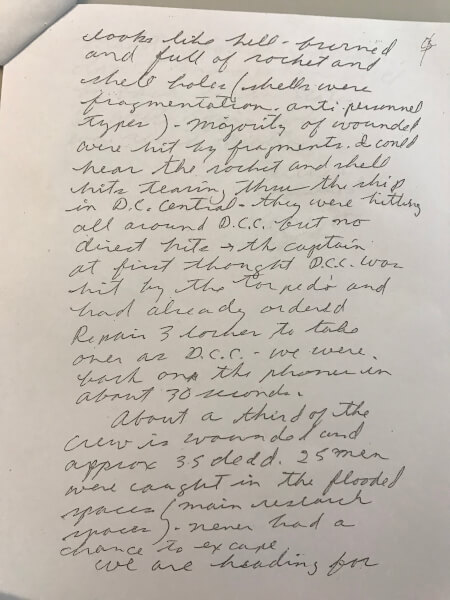 looks like hell - burned
and full of rocket and
shell holes (shells were
fragmentation - anti personnel
types) - majority of wounded
were hit by fragments. I could
hear the rocket and shell
hits tearing thru the ship
in D.C. Central - they were hitting
all around D.C.C. but no
direct hits → the captain
at first thought D.C.C. was
hit by the torpedo and
had already ordered
Repair 3 locker to take
over as D.C.C. - we were
back on the phones in
about 30 seconds.
About a third of the
crew is wounded and
approx 35 dead. 25 men
were caught in the flooded
spaces (main research
spaces) - never had a
chance to excape
We are heading for